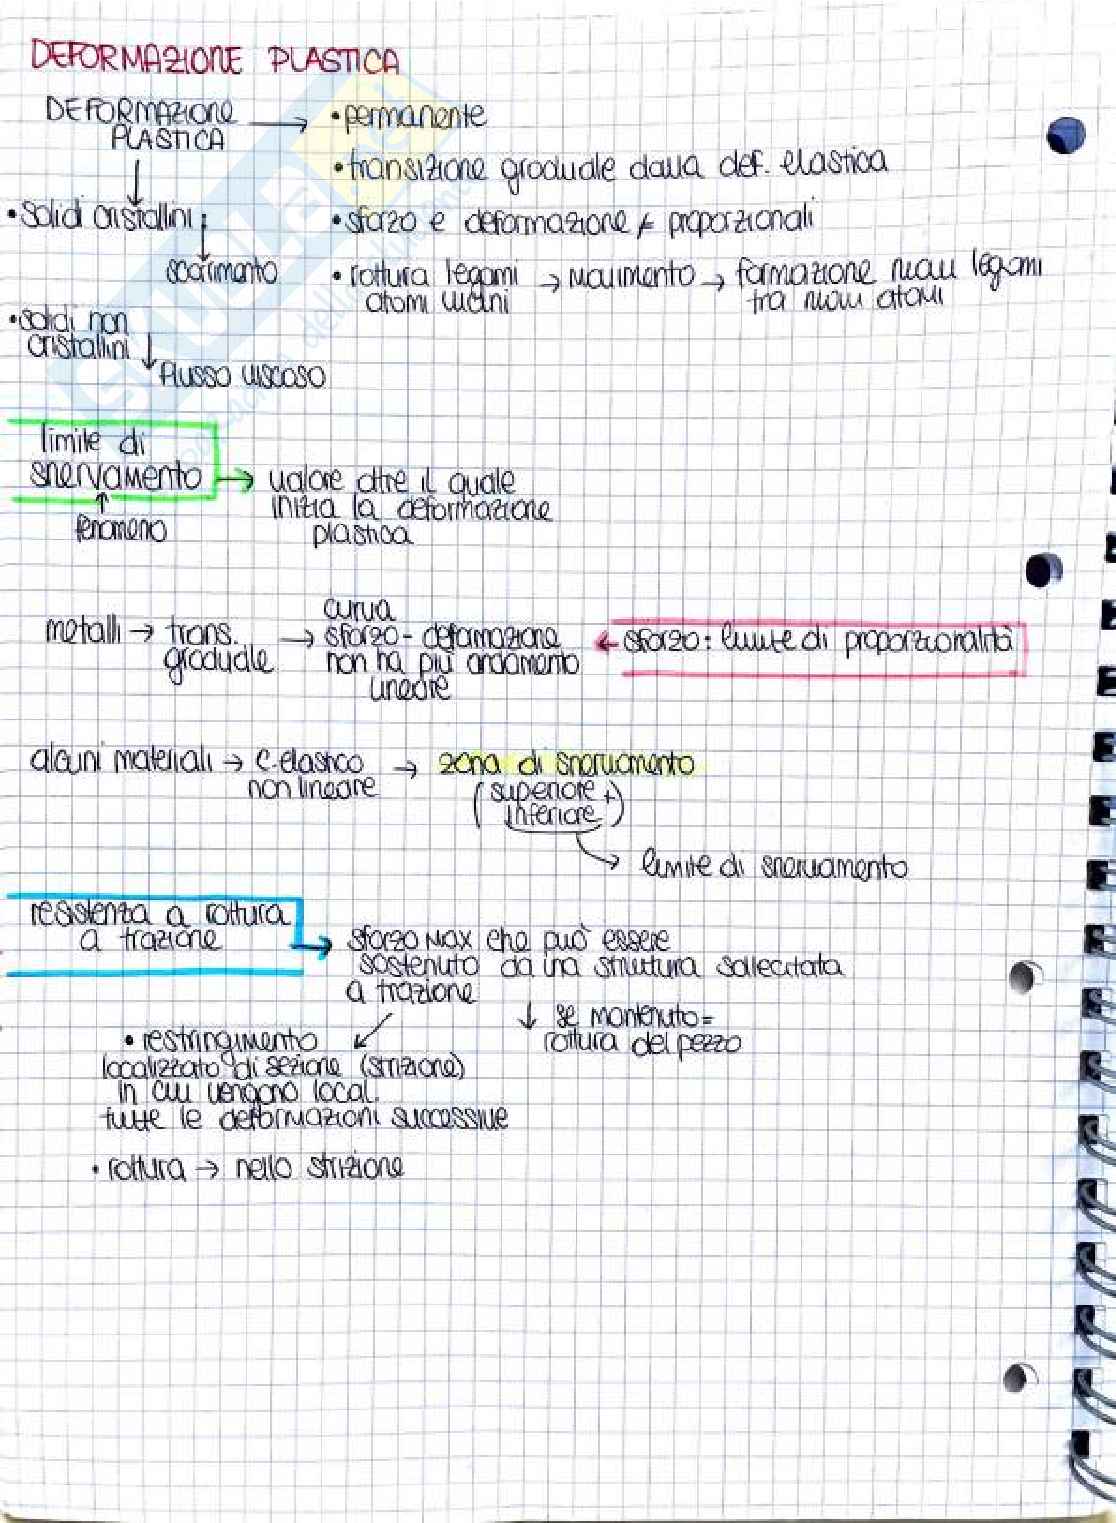 DEFORMAZIONE PLASTICA
DEFORMAZIONE → • permanente
PLASTICA
• transizione graduale dalla def. elastica
• solidi cristallini:
• sforzo e deformazione ≠ proporzionali
scorrimento
• rottura legami → movimento → formazione nuovi legami
atomi vicini
tra nuovi atomi
• solidi non
cristallini
flusso viscoso
limite di
snervamento → valore oltre il quale
inizia la deformazione
plastica
fenomeno
curva
metalli → trans. → sforzo - deformazione ← sforzo: limite di proporzionalità
graduale
non ha più andamento
lineare
alcuni materiali → c. elastico → zona di snervamento
non lineare
(superiore +
inferiore)
→ limite di snervamento
resistenza a rottura
a trazione → sforzo MAX che può essere
sostenuto da una struttura sollecitata
a trazione
↓ se mantenuto =
rottura del pezzo
• restringimento
localizzato di sezione (strizione)
in cui vengono local.
tutte le deformazioni successive
• rottura → nello strizione